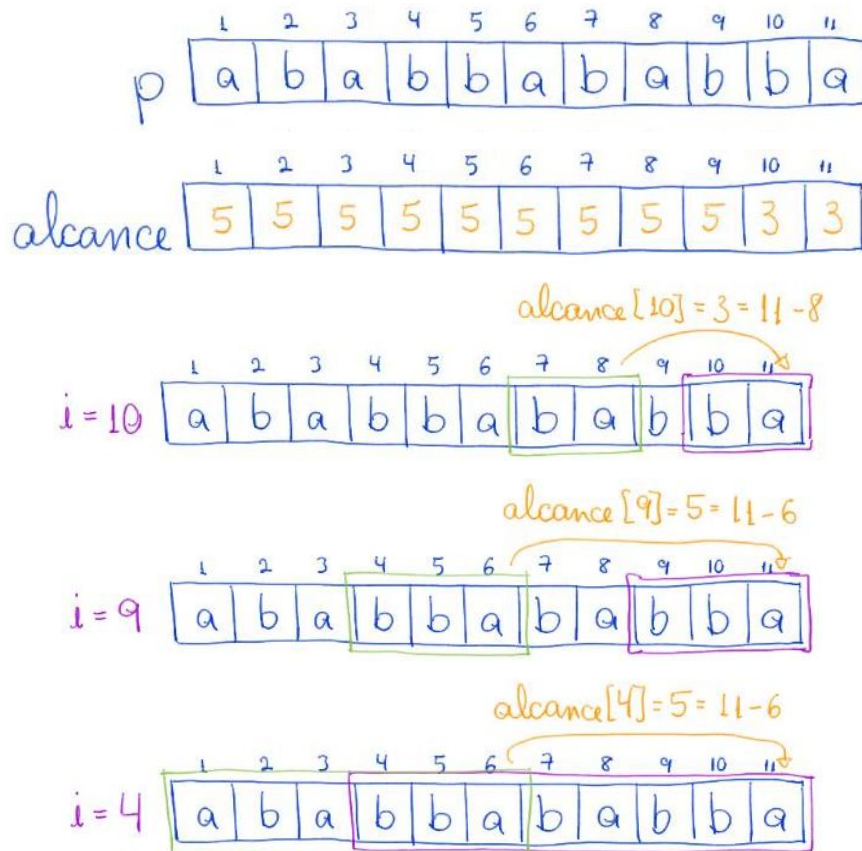 1 2 3 4 5 6 7 8 9 10 11
p a b a b b a b a b b a
1 2 3 4 5 6 7 8 9 10 11
alcance 5 5 5 5 5 5 5 5 5 3 3
alcance [10] = 3 = 11 - 8
1 2 3 4 5 6 7 8 9 10 11
i = 10 a b a b b a b a b b a
alcance [9] = 5 = 11 - 6
1 2 3 4 5 6 7 8 9 10 11
i = 9 a b a b b a b a b b a
alcance [4] = 5 = 11 - 6
1 2 3 4 5 6 7 8 9 10 11
i = 4 a b a b b a b a b b a